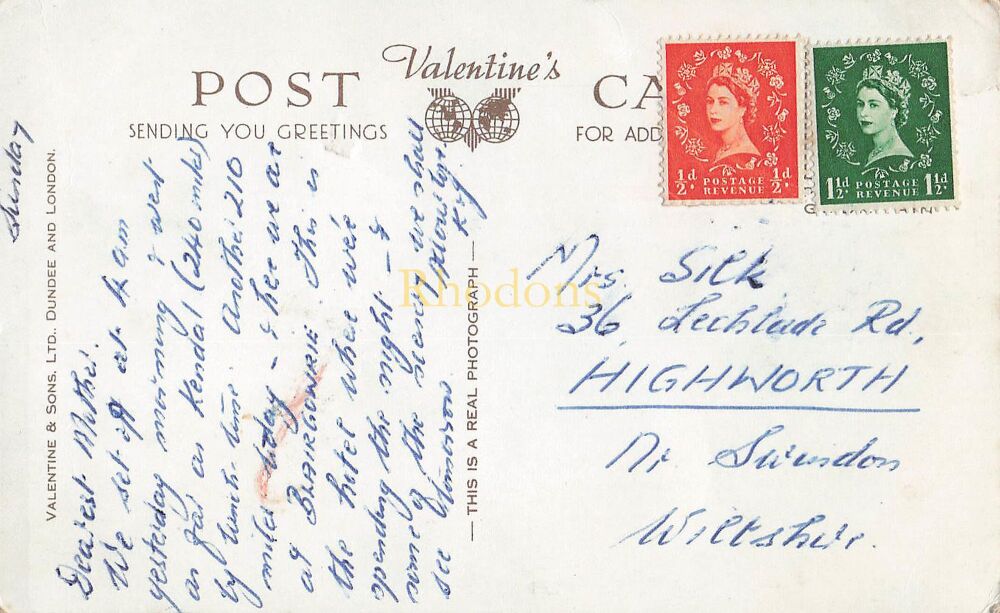 POST
Valentine's
CA
SENDING YOU GREETINGS
FOR ADD
½d POSTAGE REVENUE ½d
1½d POSTAGE REVENUE 1½d
VALENTINE & SONS, LTD., DUNDEE AND LONDON.
THIS IS A REAL PHOTOGRAPH
Sunday
Dearest Mother.
We set off at 4 am
yesterday morning & went
as far as Kendal (240 miles)
by lunch-time. Another 210
miles today - & here we are
at BLAIRGOWRIE. This is
the hotel where we're
spending the night - &
some of the scenery we shall
see tomorrow
Mrs. Silk
36, Lechlade Rd,
HIGHWORTH
Nr. Swindon
Wiltshire.
Rhodons